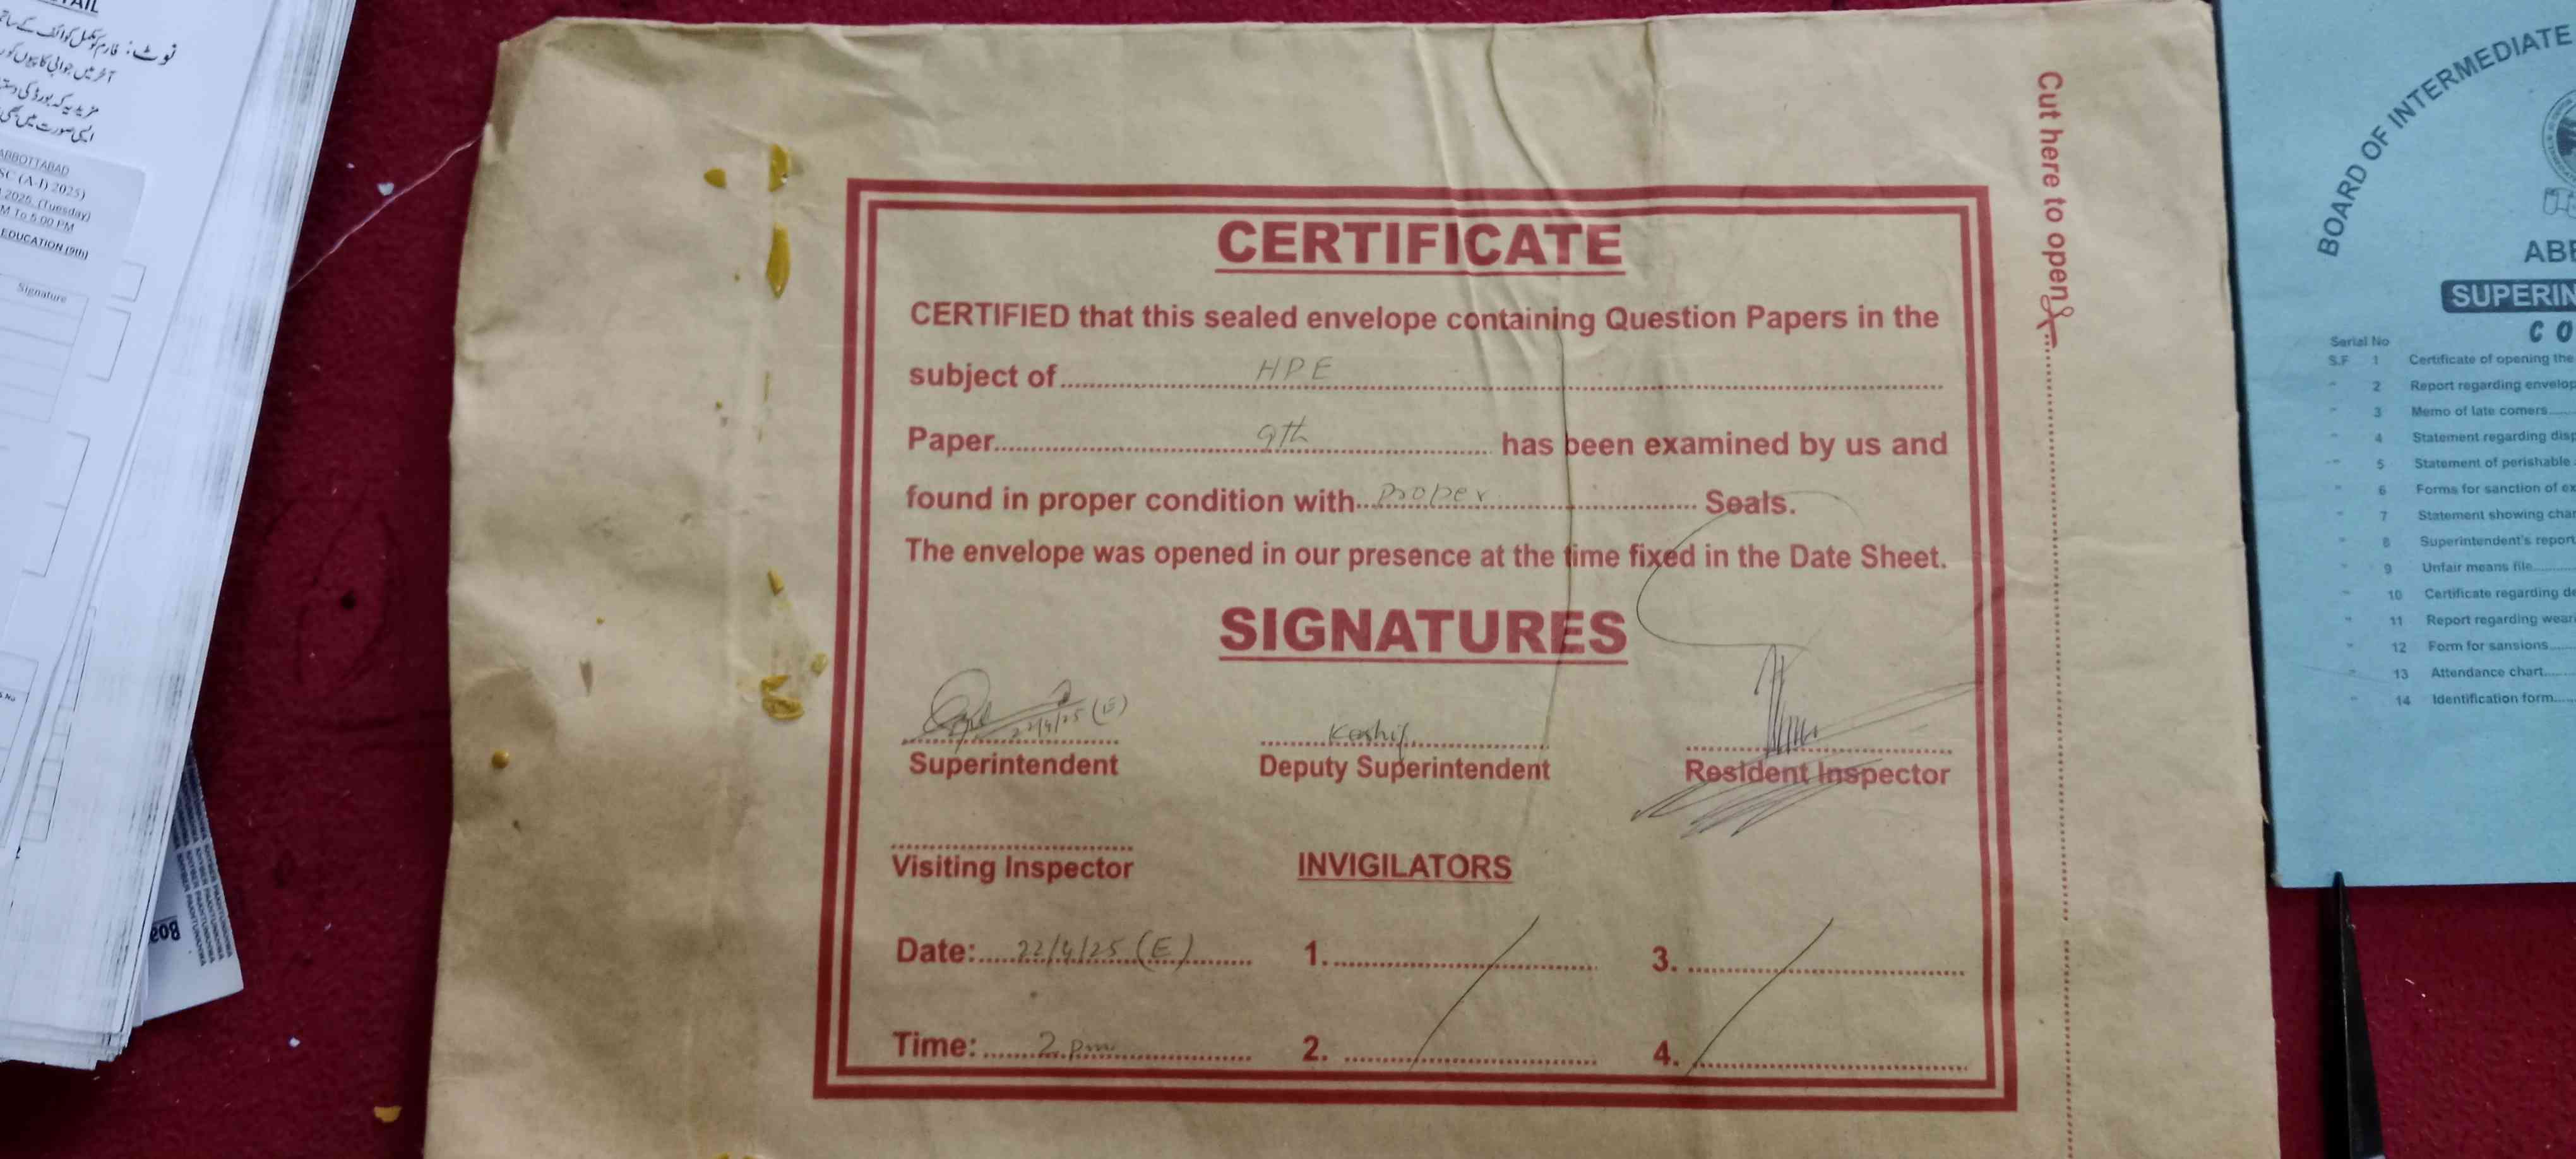 TAIL
نوٹ: فارم کو مکمل کوائف کے ساتھ
آخر میں جوابی کاپیوں کو
مزید یہ کہ بورڈ کی
ایسی صورت میں بھی
ABBOTTABAD
SC (A-I) 2025)
2025, (Tuesday)
M To 5:00 PM
EDUCATION (9th)
Signature
CERTIFICATE
CERTIFIED that this sealed envelope containing Question Papers in the
subject of HPE
Paper 9th has been examined by us and
found in proper condition with Proper Seals.
The envelope was opened in our presence at the time fixed in the Date Sheet.
SIGNATURES
22/4/25 (E)
Kashif
Superintendent Deputy Superintendent Resident Inspector
Visiting Inspector INVIGILATORS
Date: 22/4/25 (E) 1. 3.
Time: 2 pm 2. 4.
Cut here to open
BOARD OF INTERMEDIATE
ABB
SUPERIN
CO
Serial No
S.F 1 Certificate of opening the
" 2 Report regarding envelop
" 3 Memo of late comers
" 4 Statement regarding disp
" 5 Statement of perishable
" 6 Forms for sanction of ex
" 7 Statement showing char
" 8 Superintendent's report
" 9 Unfair means file
" 10 Certificate regarding de
" 11 Report regarding wear
" 12 Form for sansions
" 13 Attendance chart
" 14 Identification form